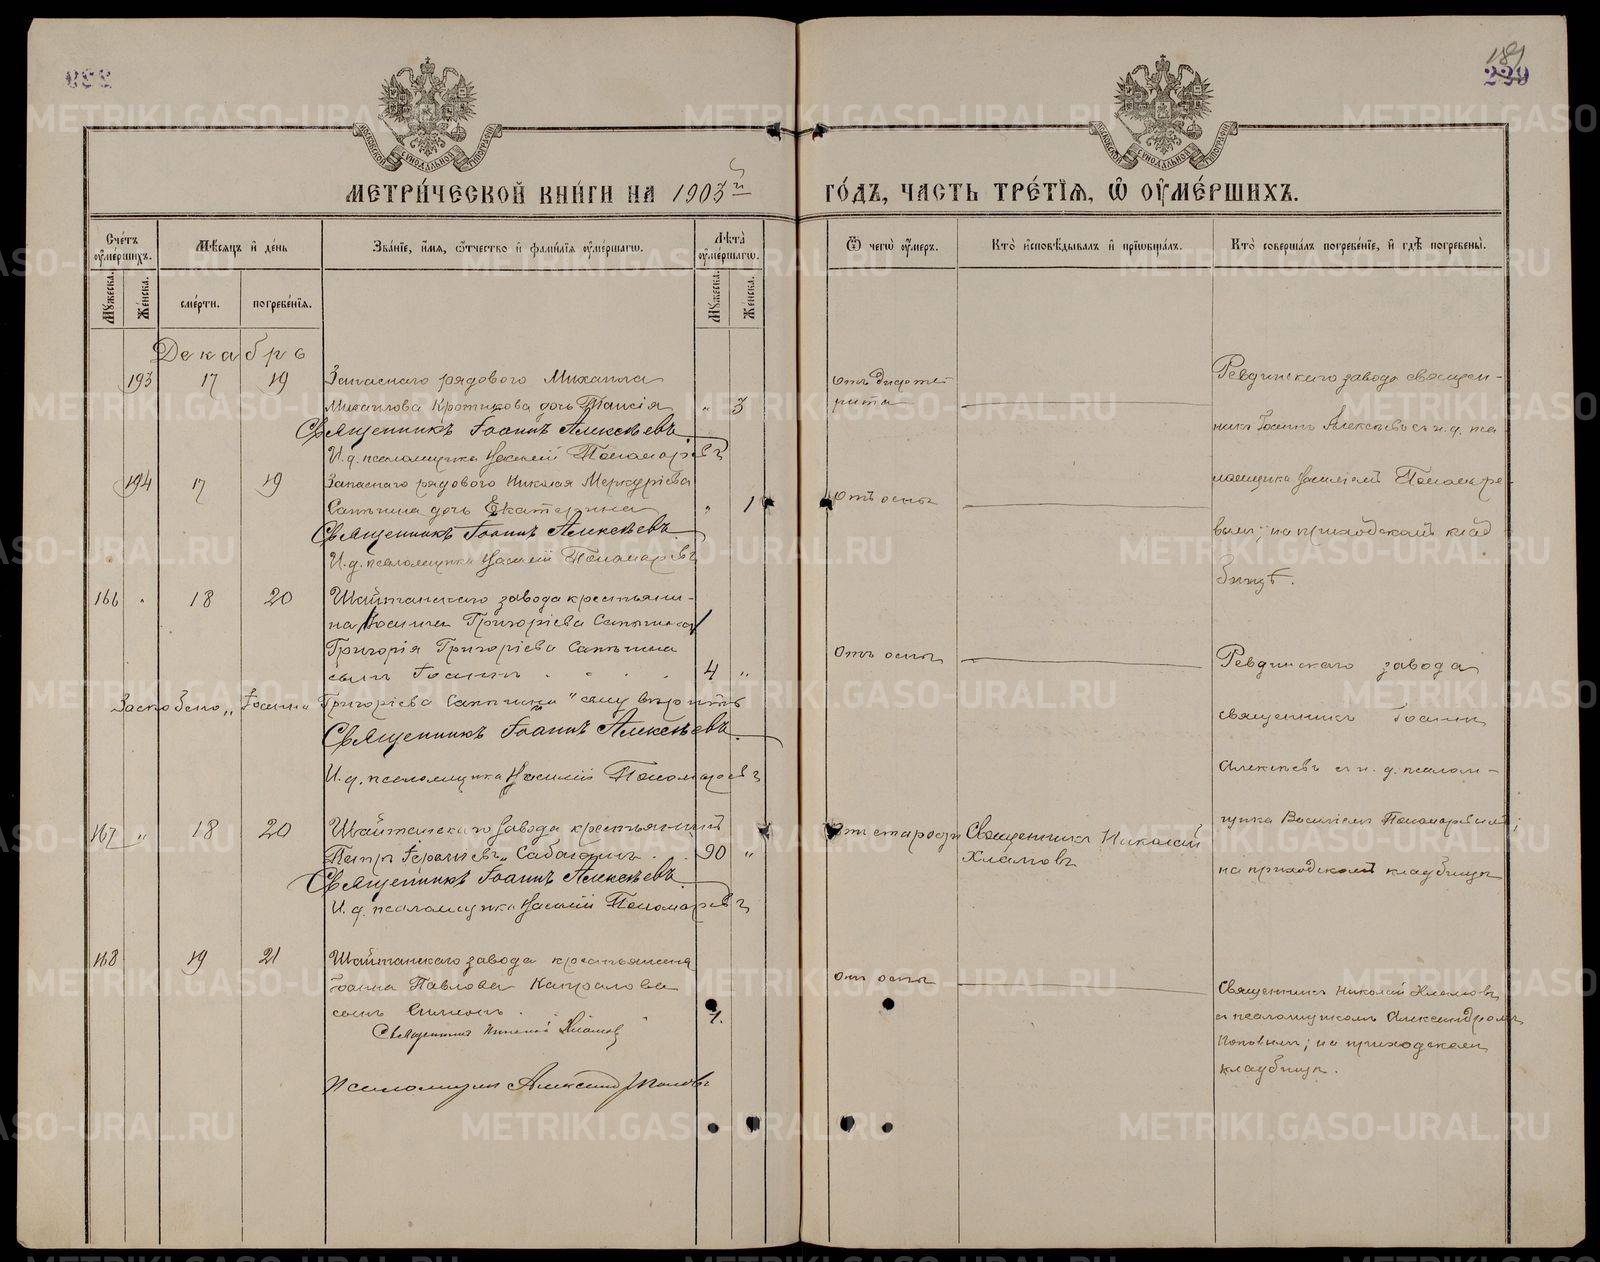 229
МЕТРИ́ЧЕСКОЙ КНИ́ГИ НА 1903й ГО́ДЪ, ЧАСТЬ ТРЕ́ТЇѦ, Ѿ ОУМЕ́РШИХЪ.
Сче́тъ оуме́ршихъ.
Мꙋжеска.
Же́нска.
Мѣ́сяцъ и де́нь
сме́рти.
погребе́нїѧ.
Зва́нїе, и́мѧ, ѻ́тчество и фами́лїѧ оуме́ршагѡ.
Лѣ́та оуме́ршагѡ.
Мꙋжеска.
Же́нска.
Ѿ чегѡ̀ оу́меръ.
Кто̀ исповѣ́дывалъ и прїѡбща́лъ.
Кто̀ соверша́лъ погребе́нїе, и гдѣ̀ погребены̀.
Декабрь
193 17 19 Запаснаго рядового Михаила
Михаилова Кротикова дочь Таисія „ 3
Священникъ Іоаннъ Алексѣевъ.
И. д. псаломщика Василій Пономаревъ
отъ дифте-
рита
Ревдинскаго завода священ-
никъ Іоаннъ Алексѣевъ съ и. д. пса
ломщика Василіемъ Пономаре-
вымъ; на приходскомъ клад
бищѣ.
194 17 19 Запаснаго рядового Николая Меркуріева
Сапѣгина дочь Екатерина „ 1
Священникъ Іоаннъ Алексѣевъ.
И. д. псаломщика Василій Пономаревъ
Отъ оспы
166 „ 18 20 Шайтанскаго завода крестьяни-
на Іоанна Григоріева
Григорія Григоріева
сынъ Іоаннъ 4 „
Григоріева
Священникъ Іоаннъ Алексѣевъ.
И. д. псаломщика Василій Пономаревъ
Отъ оспы
Ревдинскаго завода
священникъ Іоаннъ
Алексѣевъ съ и. д. псалом-
щика Василіемъ Пономаревымъ;
на приходскомъ кладбищѣ
167 „ 18 20 Шайтанскаго завода крестьянинъ
Петръ 90 „
Священникъ Іоаннъ Алексѣевъ.
И. д. псаломщика Василій Пономаревъ
Отъ старости
Священникъ Николай
Хламовъ
168 19 21 Шайтанскаго завода крестьянина
Іоанна Павлова Капралова
сынъ Симеонъ
Священникъ Николай Хламовъ
Псаломщикъ Александръ Поповъ
отъ оспы
Священникъ Николай Хламовъ
съ псаломщикомъ Александромъ
Поповымъ; на приходскомъ
кладбищѣ.
METRIKI.GASO-URAL.RU